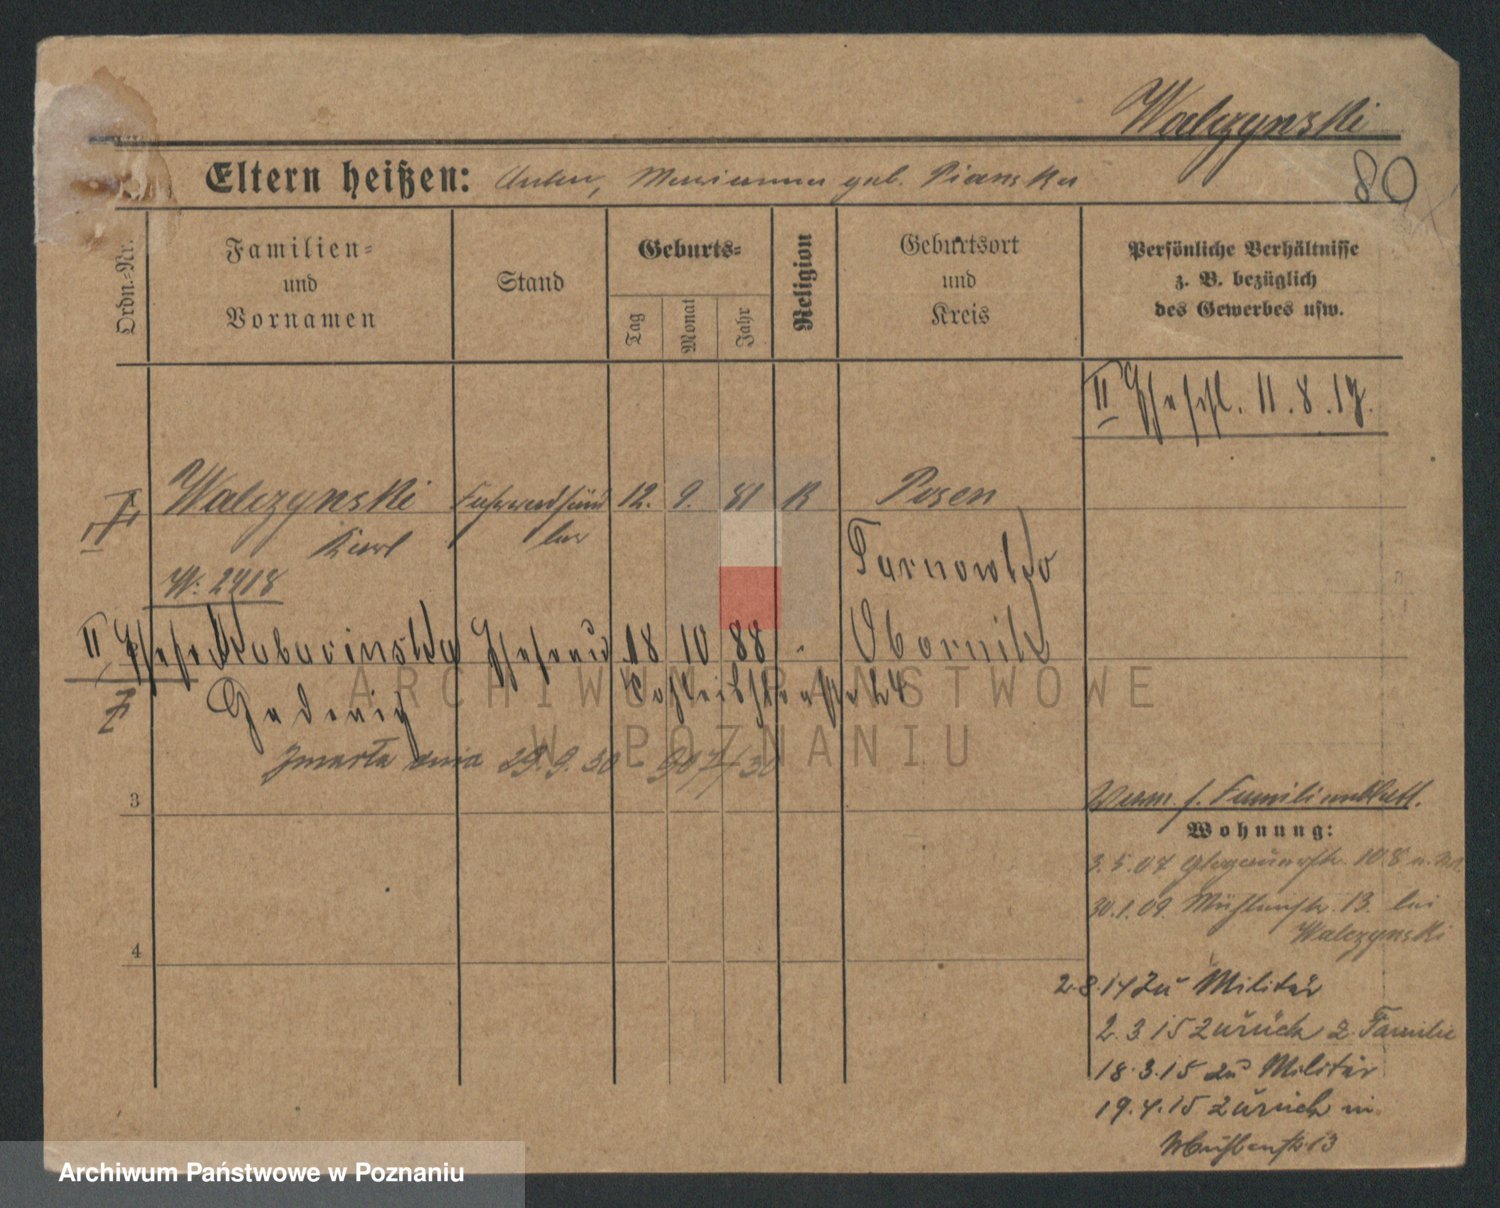 Walczynski
80
Eltern heißen: Anton, Marianna geb. Pianska
Ordn.-Nr.
Familien- und Vornamen
Stand
Geburts-
Tag
Monat
Jahr
Religion
Geburtsort und Kreis
Persönliche Verhältnisse z. B. bezüglich des Gewerbes usw.
II Eheschl. 11.8.17.
I Walczynski 12. 9. 81 K Posen
Karl
W: 2418
Tarnowko
II Ehefr. Ehefrau 18 10 88 Obornik
Hedwig
Zmarła dnia 29.9.30 907/30
3
Verm. s. Familienblatt.
Wohnung:
3.5.07 108
30.1.09. Mühlenstr. 13. bei
Walczynski
4
2.8.14 zu Militär
2.3.15 zurück z. Familie
18.3.15 zu Militär
19.4.15 zurück in
Mühlenstr. 13
ARCHIWUM PAŃSTWOWE
W POZNANIU
Archiwum Państwowe w Poznaniu